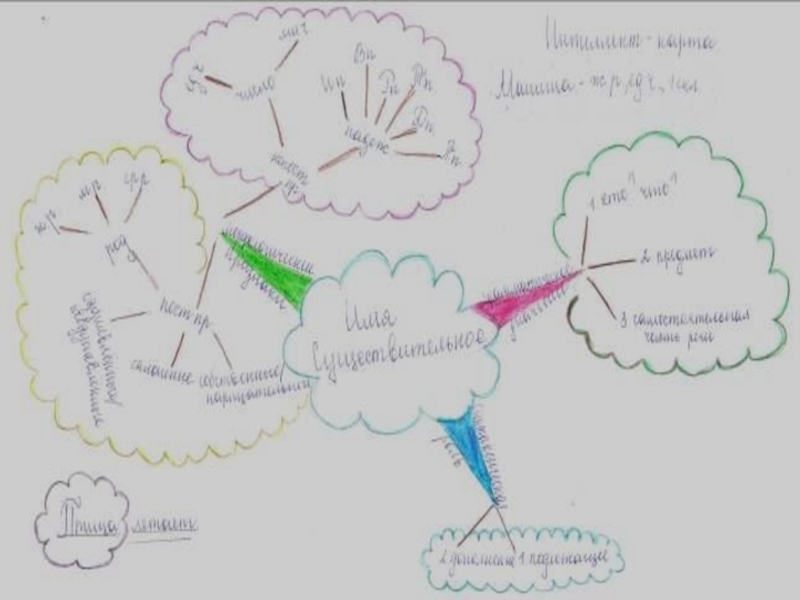 Интеллект-карта
Машина - ж.р, ед.ч., 1 скл.
мн.ч
ед.ч
число
Ип
Вп
Рп
Дп
падеж
непост
пр
ж.р
м.р
ср.р
род
пост.пр
одушевлённые/
неодушевлённые
склонение
собственные/
нарицательные
морфологические
признаки
Имя
Существительное
грамматическое
значение
1 кто? что?
2 предмет
3 самостоятельная
часть речи
синтаксическая
роль
2 дополнение
1 подлежащее
Птица летает